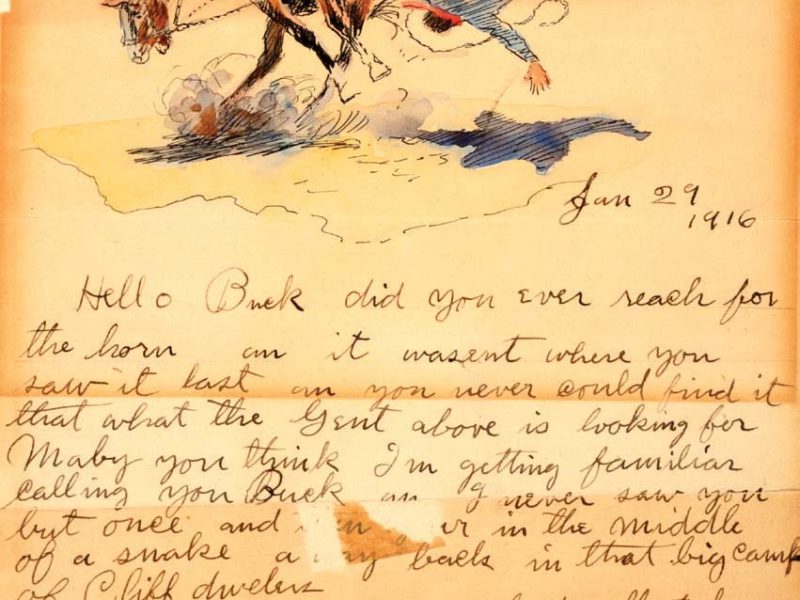 Jan 29
1916
Hello Buck did you ever reach for
the horn an it wasent where you
saw it last an you never could find it
that what the Gent above is looking for
Maby you think I'm getting familiar
calling you Buck an I never saw you
but once and in the middle
of a snake back in that big camp
of Cliff dwelers